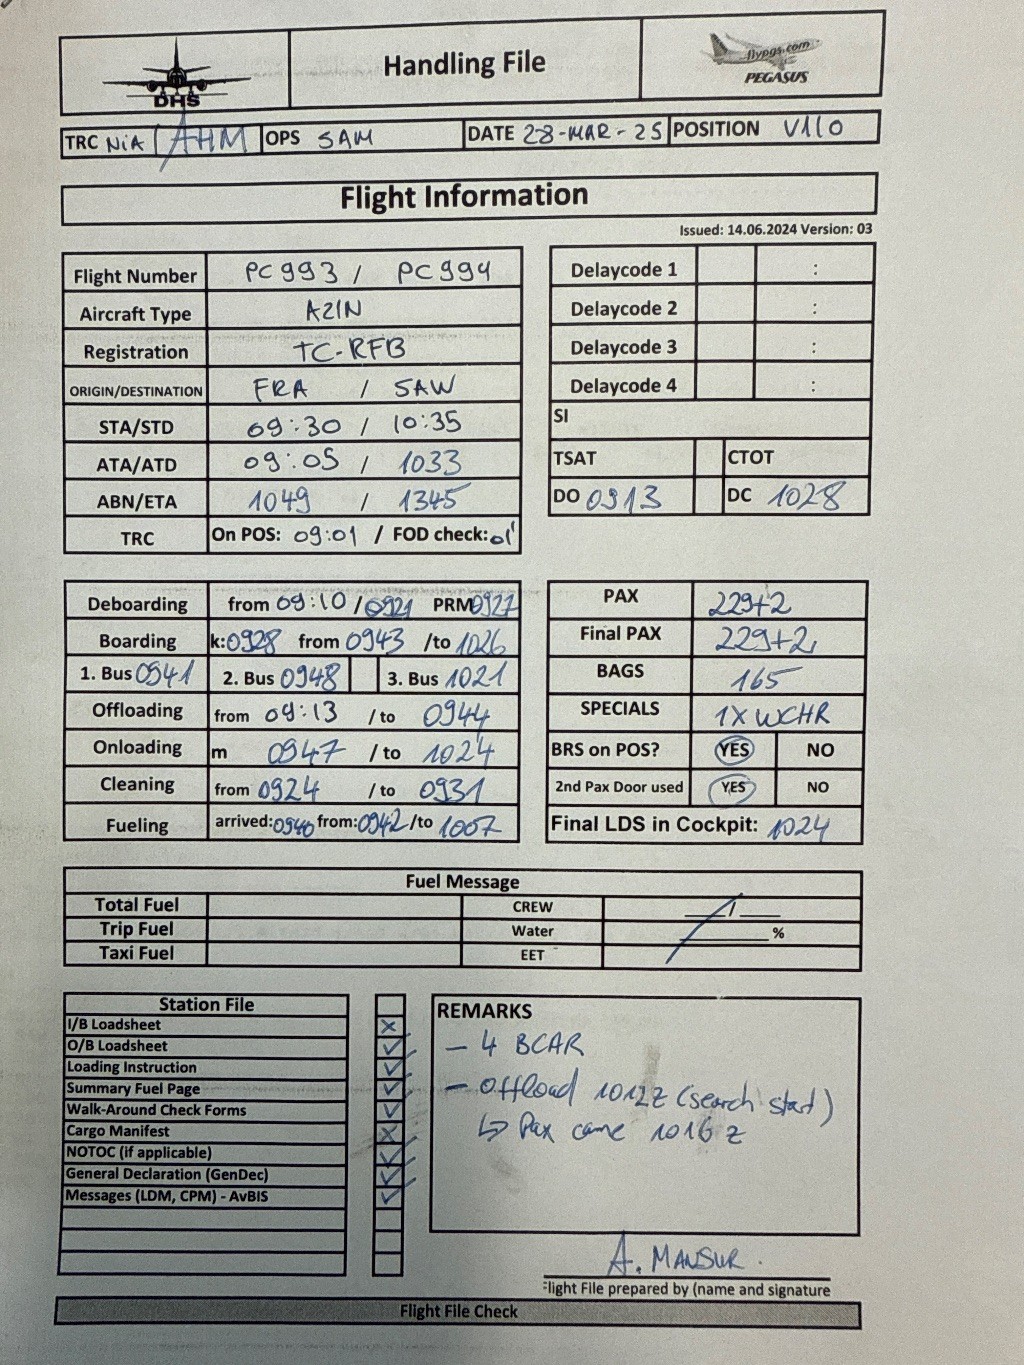 DHS
Handling File
flypgs.com
PEGASUS
TRC NiA / AHM OPS SAM DATE 28-MAR-25 POSITION V110
Flight Information
Issued: 14.06.2024 Version: 03
Flight Number PC993 / PC994
Aircraft Type A21N
Registration TC-RFB
ORIGIN/DESTINATION FRA / SAW
STA/STD 09:30 / 10:35
ATA/ATD 09:05 / 1033
ABN/ETA 1049 / 1345
TRC On POS: 09:01 / FOD check: 01'
Delaycode 1 :
Delaycode 2 :
Delaycode 3 :
Delaycode 4 :
SI
TSAT CTOT
DO 0913 DC 1028
Deboarding from 09:10 / 0921 PRM 0927
Boarding k: 0928 from 0943 /to 1026
1. Bus 0941 2. Bus 0948 3. Bus 1021
Offloading from 09:13 / to 0944
Onloading m 0947 / to 1024
Cleaning from 0924 / to 0931
Fueling arrived: 0940 from: 0942 /to 1007
PAX 229+2
Final PAX 229+2
BAGS 165
SPECIALS 1X WCHR
BRS on POS? YES NO
2nd Pax Door used YES NO
Final LDS in Cockpit: 1024
Fuel Message
Total Fuel CREW ___/___
Trip Fuel Water ______%
Taxi Fuel EET
Station File
I/B Loadsheet X
O/B Loadsheet ✓
Loading Instruction ✓
Summary Fuel Page ✓
Walk-Around Check Forms ✓
Cargo Manifest X
NOTOC (if applicable) ✓
General Declaration (GenDec) ✓
Messages (LDM, CPM) - AvBIS ✓
REMARKS
- 4 BCAR
- Offload 1012z (search start)
↳ Pax came 1016 z
A. MANSUR.
light File prepared by (name and signature
Flight File Check